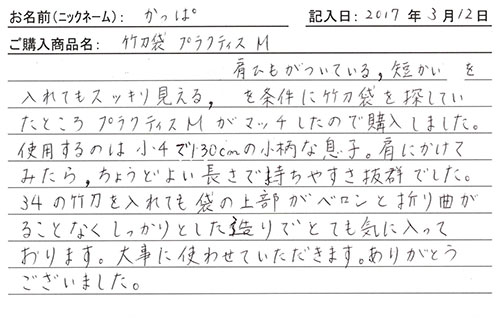 お名前(ニックネーム): かっぱ 記入日: 2017 年 3 月 12 日
ご購入商品名: 竹刀袋 プラクティス M
肩ひもがついている, 短かい を
入れてもスッキリ見える, を条件に竹刀袋を探してい
たところ プラクティス M がマッチしたので購入しました。
使用するのは 小4で130cmの小柄な息子。肩にかけて
みたら, ちょうどよい 長さで持ちやすさ抜群でした。
34 の竹刀を入れても 袋の上部がベロンと折り曲が
ることなく しっかりとした造りでとても気に入って
おります。大事に使わせていただきます。ありがとう
ございました。